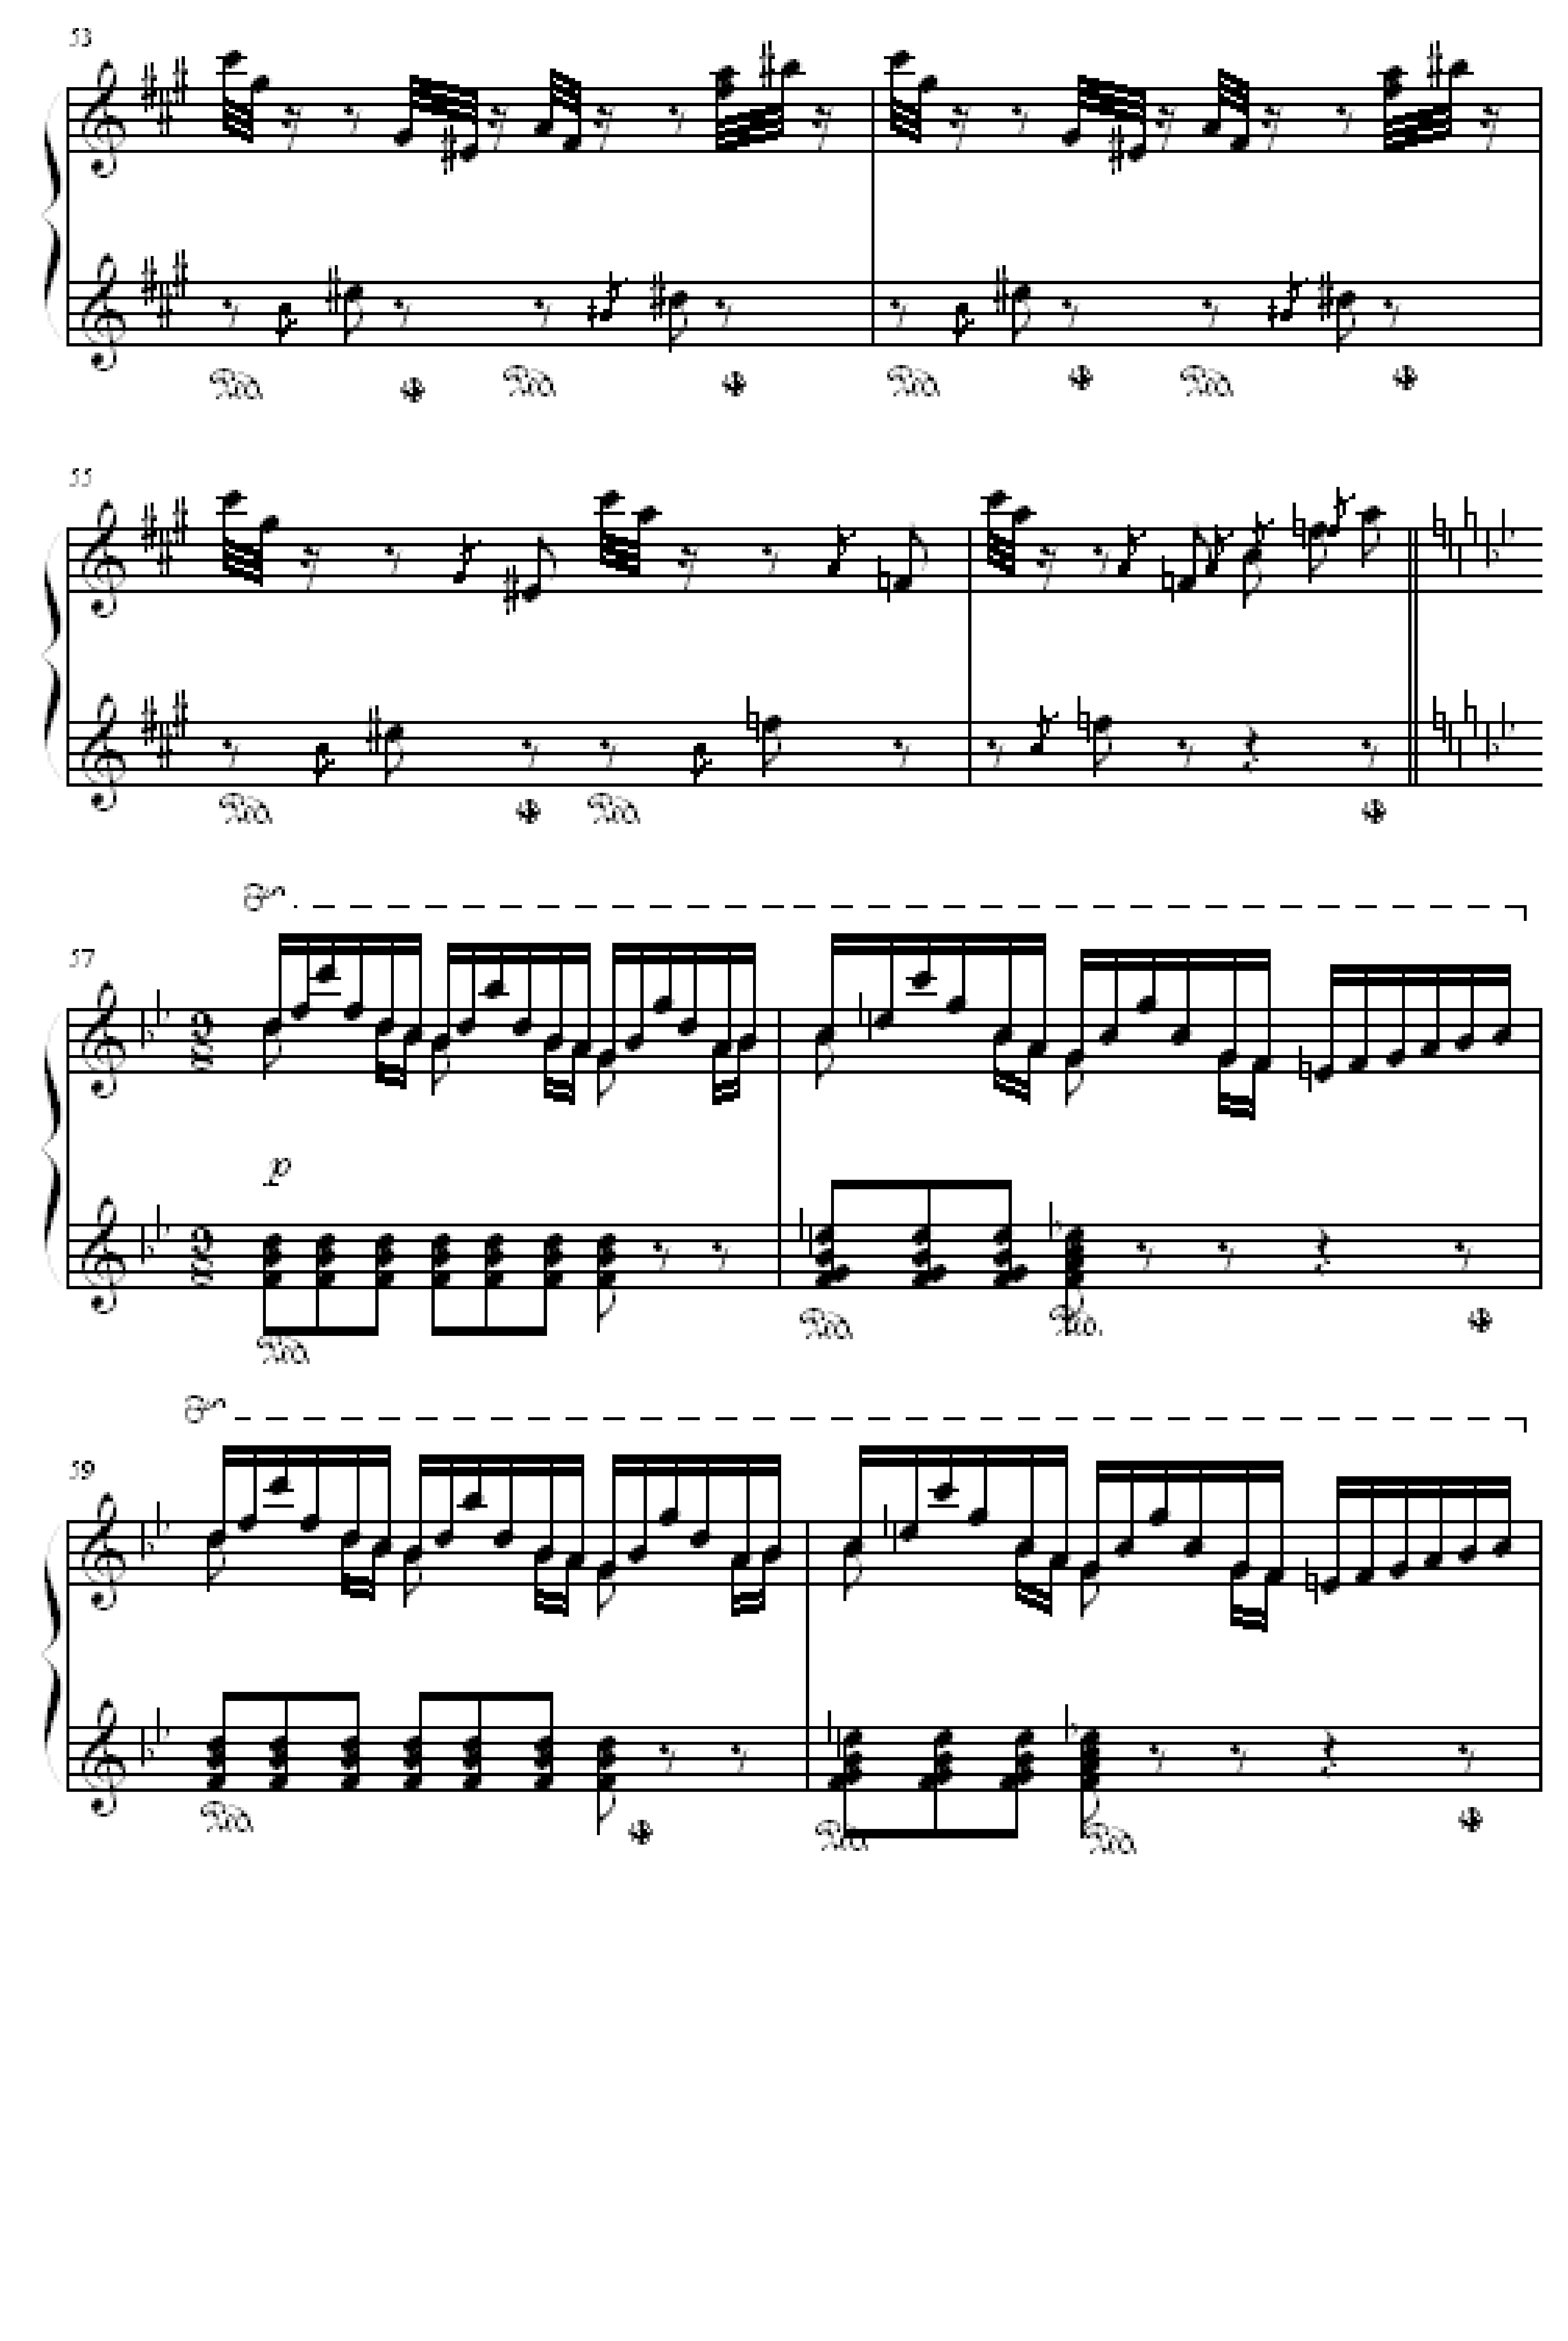 53
Ped. Ped. Ped. Ped.
55
Ped. Ped.
8va
57
9
8
p
9
8
Ped. Ped. Ped.
8va
59
Ped. Ped. Ped.